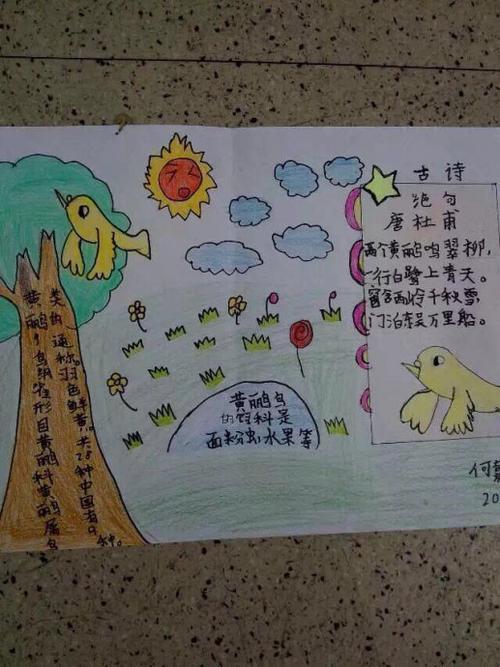 黄鹂:鸟纲雀形目黄鹂科黄鹂属鸟
类的通称。羽色鲜黄。共28种中国有6种。
黄鹂鸟
的饲料是
面粉虫水果等
古诗
绝句
唐杜甫
两个黄鹂鸣翠柳,
一行白鹭上青天。
窗含西怜千秋雪
门泊东吴万里船。
何
20